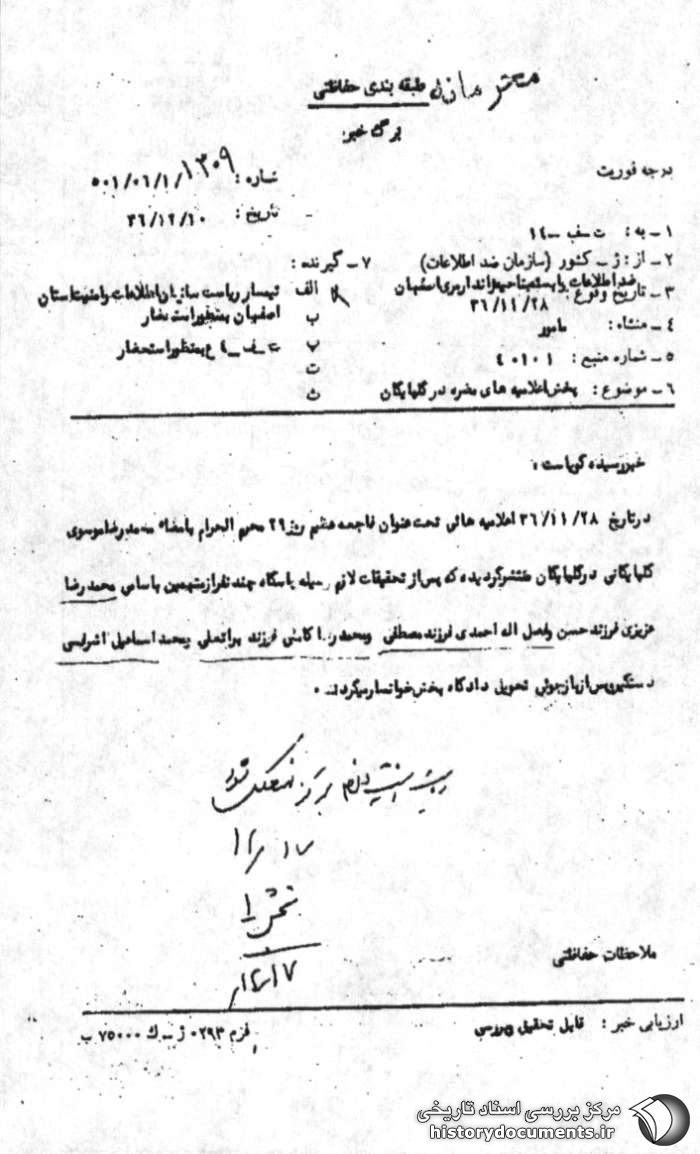 طبقه بندی حفاظتی
برگ خبر
درجه فوریت
شماره : ۵۰۱/۰۶/۱/۱۳۰۹
تاریخ : ۳۶/۱۲/۱۰
۱ـ به :
۲ـ از : ژـ کشور (سازمان ضد اطلاعات)
ضد اطلاعات وابسته بناحیه ژاندارمری اصفهان
۳ـ تاریخ وقوع : ۳۶/۱۱/۲۸
۴ـ منشاء : مامور
۵ـ شماره منبع : ۴۰۱۰۱
۶ـ موضوع : پخش اعلامیه های مضره در گلپایگان
۷ـ گیرنده :
الف تیمسار ریاست سازمان اطلاعات و امنیت استان
اصفهان بمنظور استحضار
ب
پ بمنظور استحضار
ت
ث
خبر رسیده گویاست :
در تاریخ ۳۶/۱۱/۲۸ اعلامیه هائی تحت عنوان فاجعه عظیم روز ۲۹ محرم الحرام بامضاء محمد رضا موسوی
گلپایگانی در گلپایگان منتشر گردیده که پس از تحقیقات لازم وسیله پاسگاه چند نفر از متهمین باسامی محمد رضا
عزیزی فرزند حسن وفضل اله احمدی فرزند مصطفی ومحمد رضا کاملی فرزند براتعلی ومحمد اسماعیل اشراقی
دستگیر پس از بازجوئی تحویل دادگاه بخش خوانسار میگردند .
۱۲/۱۷
بخش ۱
۱۲/۱۷
ملاحظات حفاظتی
ارزیابی خبر : قابل تحقیق وبررسی
فرم ۰۲۹۳ ژـ ك ۷۵۰۰۰ ب
مرکز بررسی اسناد تاریخی
historydocuments.ir